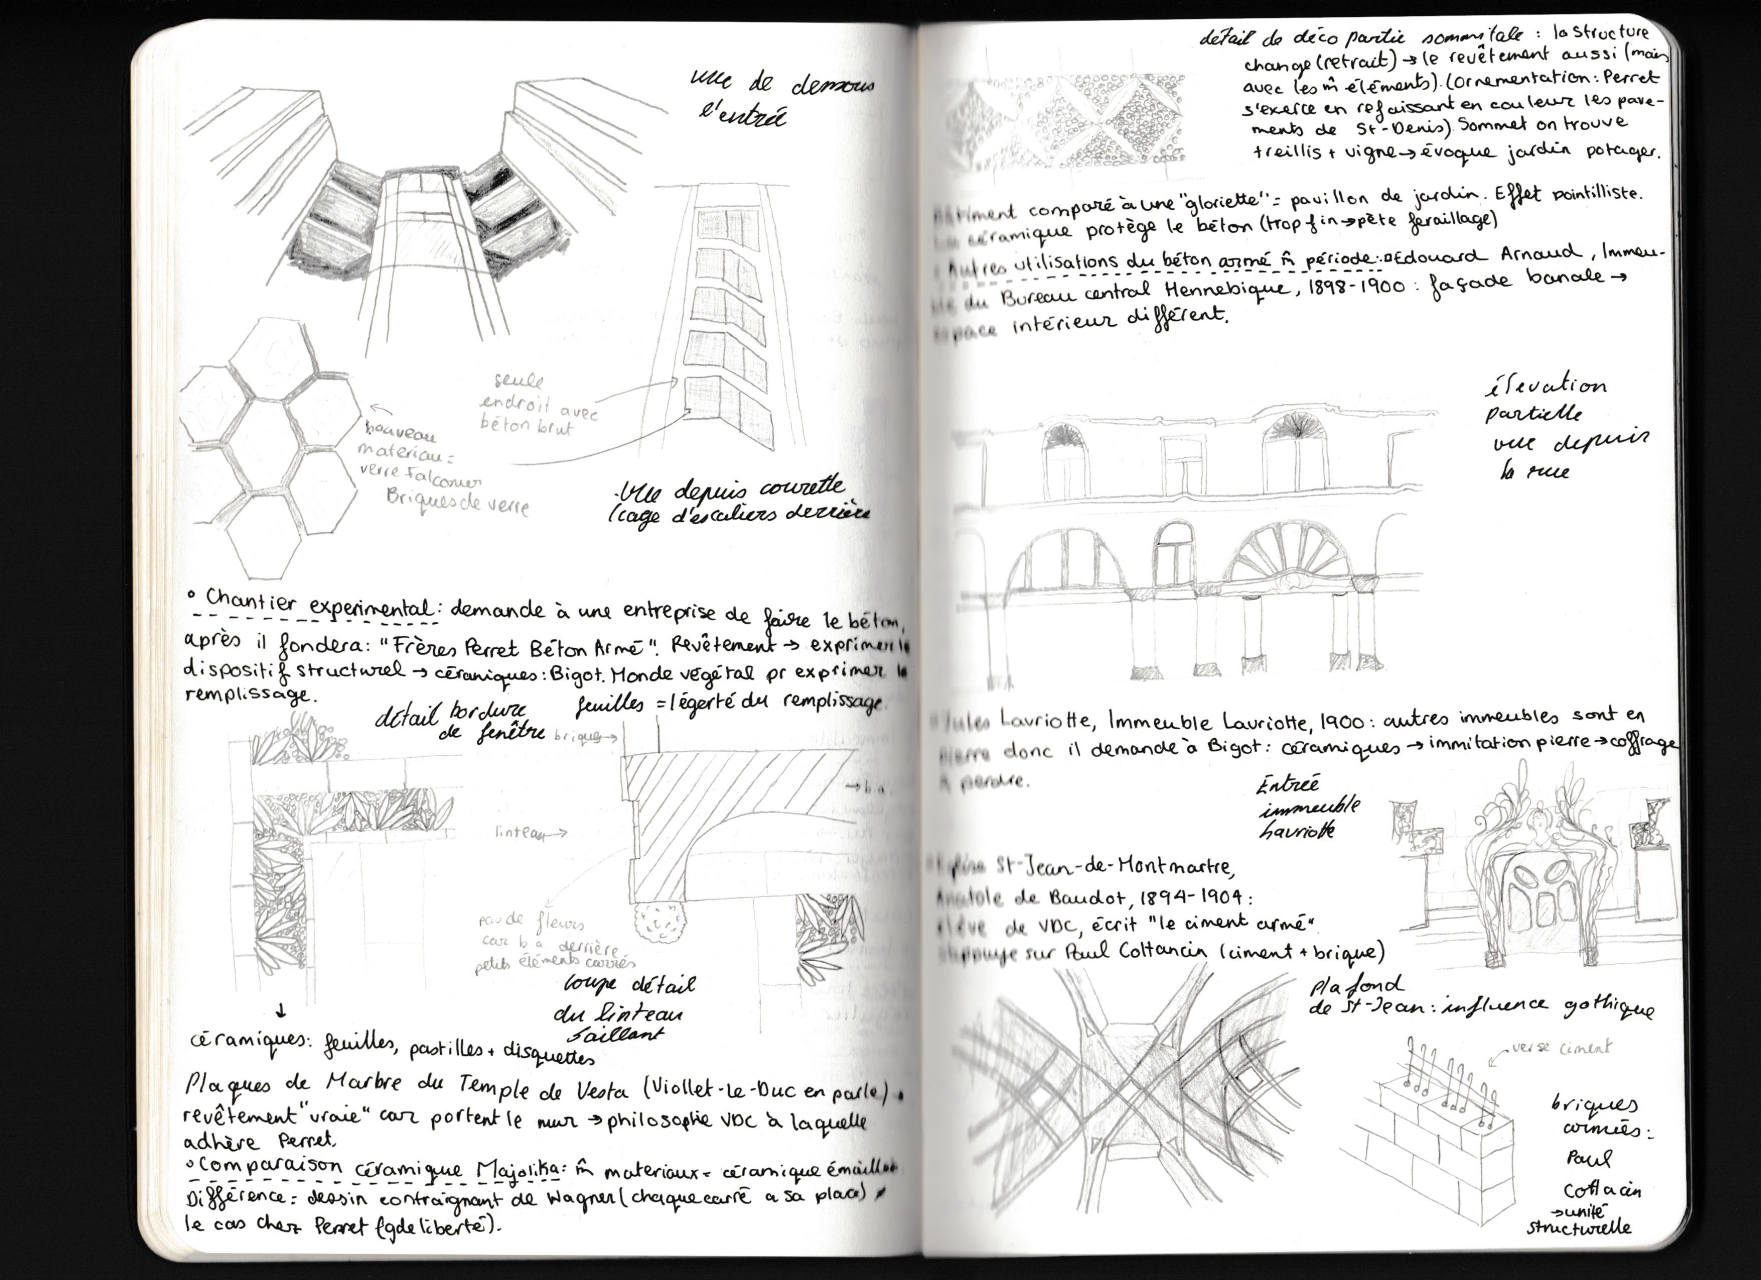 vue de dessous
l'entrée
seule
endroit avec
béton brut
nouveau
materiau =
verre Falconier
Briques de verre
.Vue depuis courette
(cage d'escaliers derrière
° Chantier experimental: demande à une entreprise de faire le béton,
après il fondera: "Frères Perret Béton Armé". Revêtement → exprimer le
dispositif structurel → céramiques: Bigot. Monde végétal pr exprimer le
remplissage.
feuilles = légerté du remplissage.
détail bordure
de fenêtre
brique →
→ b.a.
linteau →
pas de fleurs
car b a derrière
petits éléments carrés
coupe détail
du linteau
saillant
↓
céramiques: feuilles, pastilles + disquettes
Plaques de Marbre du Temple de Vesta (Viollet-Le-Duc en parle)
revêtement "vraie" car portent le mur → philosophie VDC à laquelle
adhère Perret.
° Comparaison céramique Majolika: m̂ materiaux = céramique émaillée
Différence = dessin contraignant de Wagner (chaque carré a sa place) ≠
le cas chez Perret (gde liberté).
détail de déco partie sommitale : la structure
change (retrait) → le revêtement aussi (mais
avec les m̂ éléments). (Ornementation: Perret
s'exerce en refaissant en couleur les pave-
ments de St-Denis). Sommet on trouve
treillis + vigne → évoque jardin potager.
Bâtiment comparé à une "gloriette" = pavillon de jardin. Effet pointilliste.
La céramique protège le béton (trop fin → pète feraillage)
° Autres utilisations du béton armé m̂ période: ° Edouard Arnaud, Immeu-
ble du Bureau central Hennebique, 1898-1900 : façade banale →
espace intérieur différent.
élevation
partielle
vue depuis
la rue
° Jules Lavriotte, Immeuble Lavriotte, 1900: autres immeubles sont en
pierre donc il demande à Bigot: céramiques → immitation pierre → coffrage
à perdre.
Entrée
immeuble
Lavriotte
° Eglise St-Jean-de-Montmartre,
Anatole de Baudot, 1894-1904:
élève de VDC, écrit "le ciment armé"
s'appuye sur Paul Cottancin (ciment + brique)
plafond
de St-Jean: influence gothique
verse ciment
briques
armées:
Paul
Cottacin
→ unité
structurelle